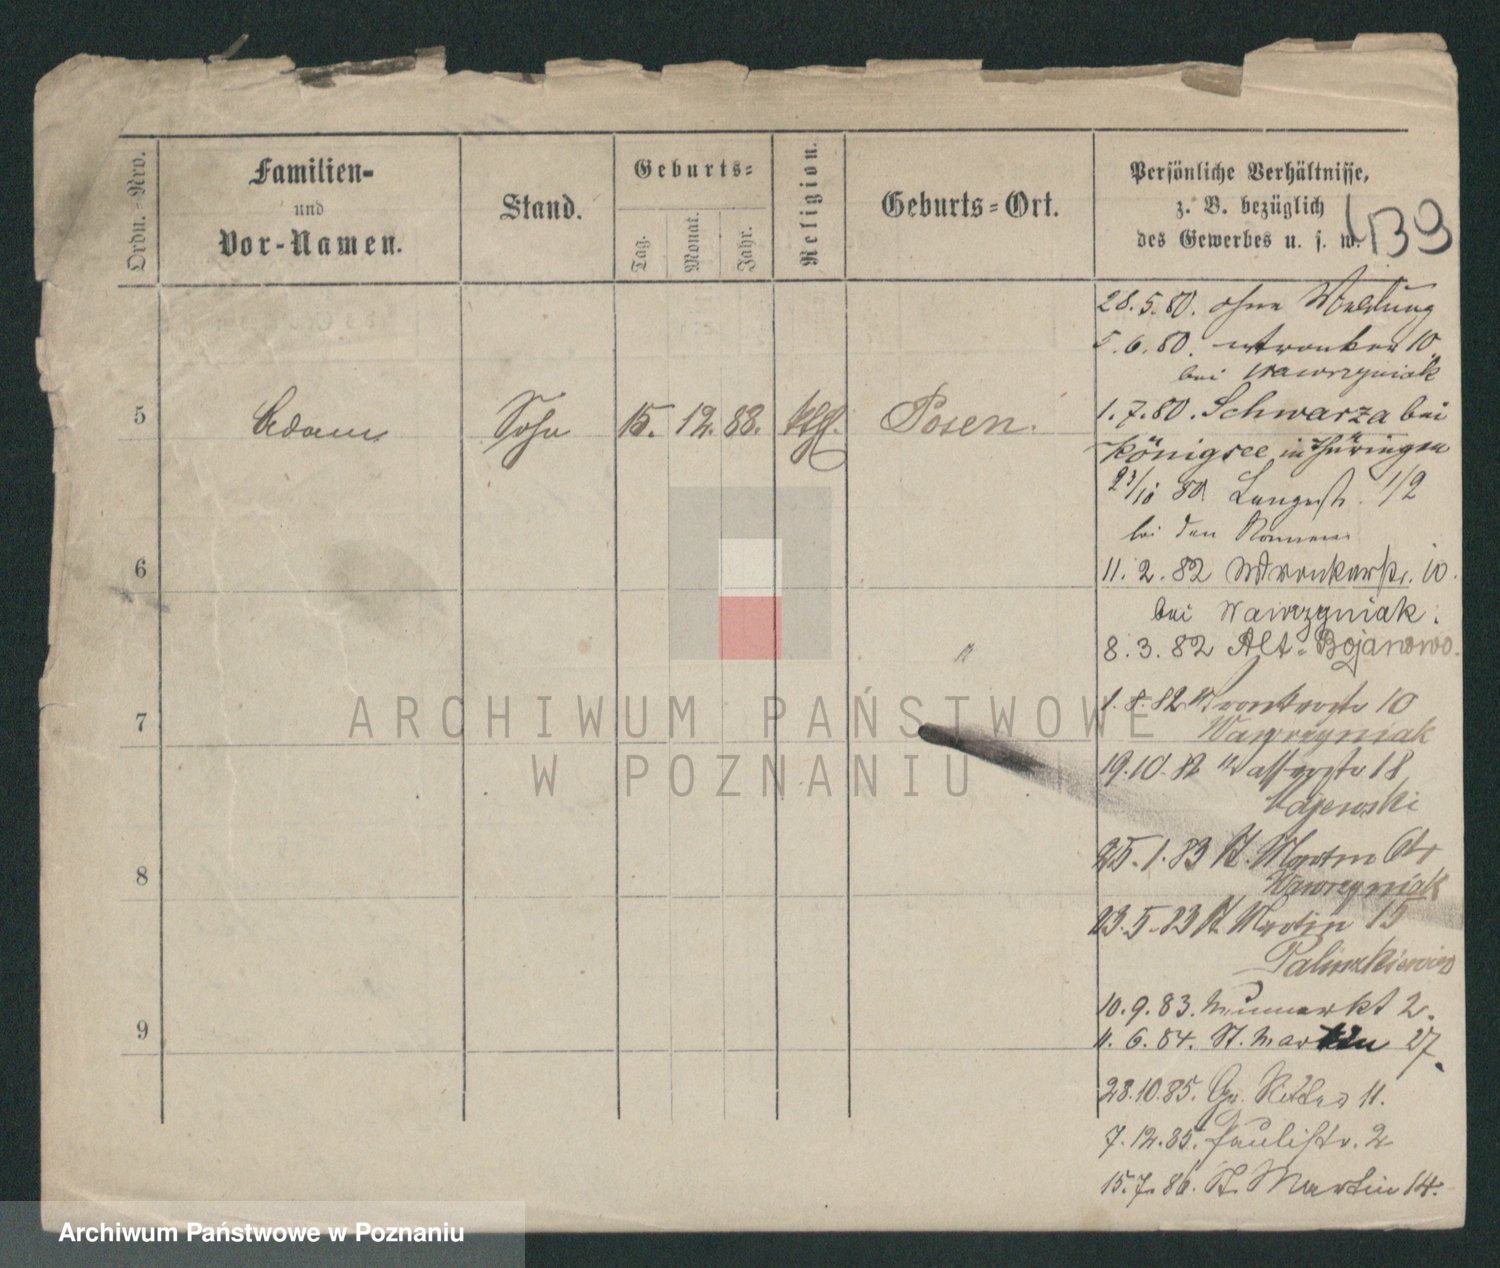 Ordn.=Nro.
Familien-
und
Vor-Namen.
Stand.
Geburts=
Tag.
Monat.
Jahr.
Religion.
Geburts=Ort.
Persönliche Verhältnisse,
z. B. bezüglich
des Gewerbes u. s. w.
139
28.5.80. ohne Meldung
5.6.80. Wronker 10
bei Wawrzyniak
5 Adam Sohn 15. 12. 88. ktl. Posen.
1.7.80. Schwarza bei
Königsee in Thüringen
10 80. Langestr. 1/2
bei den Nonnen
6
11.2.82 Wronkerstr. 10.
bei Wawrzyniak.
8.3.82 Alt-Bojanowo.
"
7
1.8.82 Wronkerstr 10
Wawrzyniak
19.10.82 Wasserstr 18
Majewski
8
25.1.83 St. Martin 64
Wawrzyniak
23.5.83 St Martin 15
Palinskiewicz
9
10.9.83. Neumarkt 2.
11.6.84. St. Martin 27.
28.10.85. Gr. Ritter 11.
7.12.85. Paulistr. 2
15.7.86. St. Martin 14.
ARCHIWUM PAŃSTWOWE
W POZNANIU
Archiwum Państwowe w Poznaniu